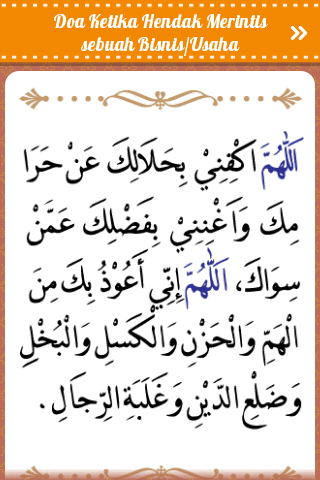 Doa Ketika Hendak Merintis
sebuah Bisnis/Usaha
اَللّٰهُمَّ اكْفِنِيْ بِحَلَالِكَ عَنْ حَرَا
مِكَ وَاَغْنِنِيْ بِفَضْلِكَ عَمَّنْ
سِوَاكَ، اَللّٰهُمَّ إِنِّي أَعُوْذُ بِكَ مِنَ
الْهَمِّ وَالْحَزْنِ وَالْكَسْلِ وَالْبُخْلِ
وَضَلْعِ الدَّيْنِ وَغَلَبَةِ الرِّجَالِ .